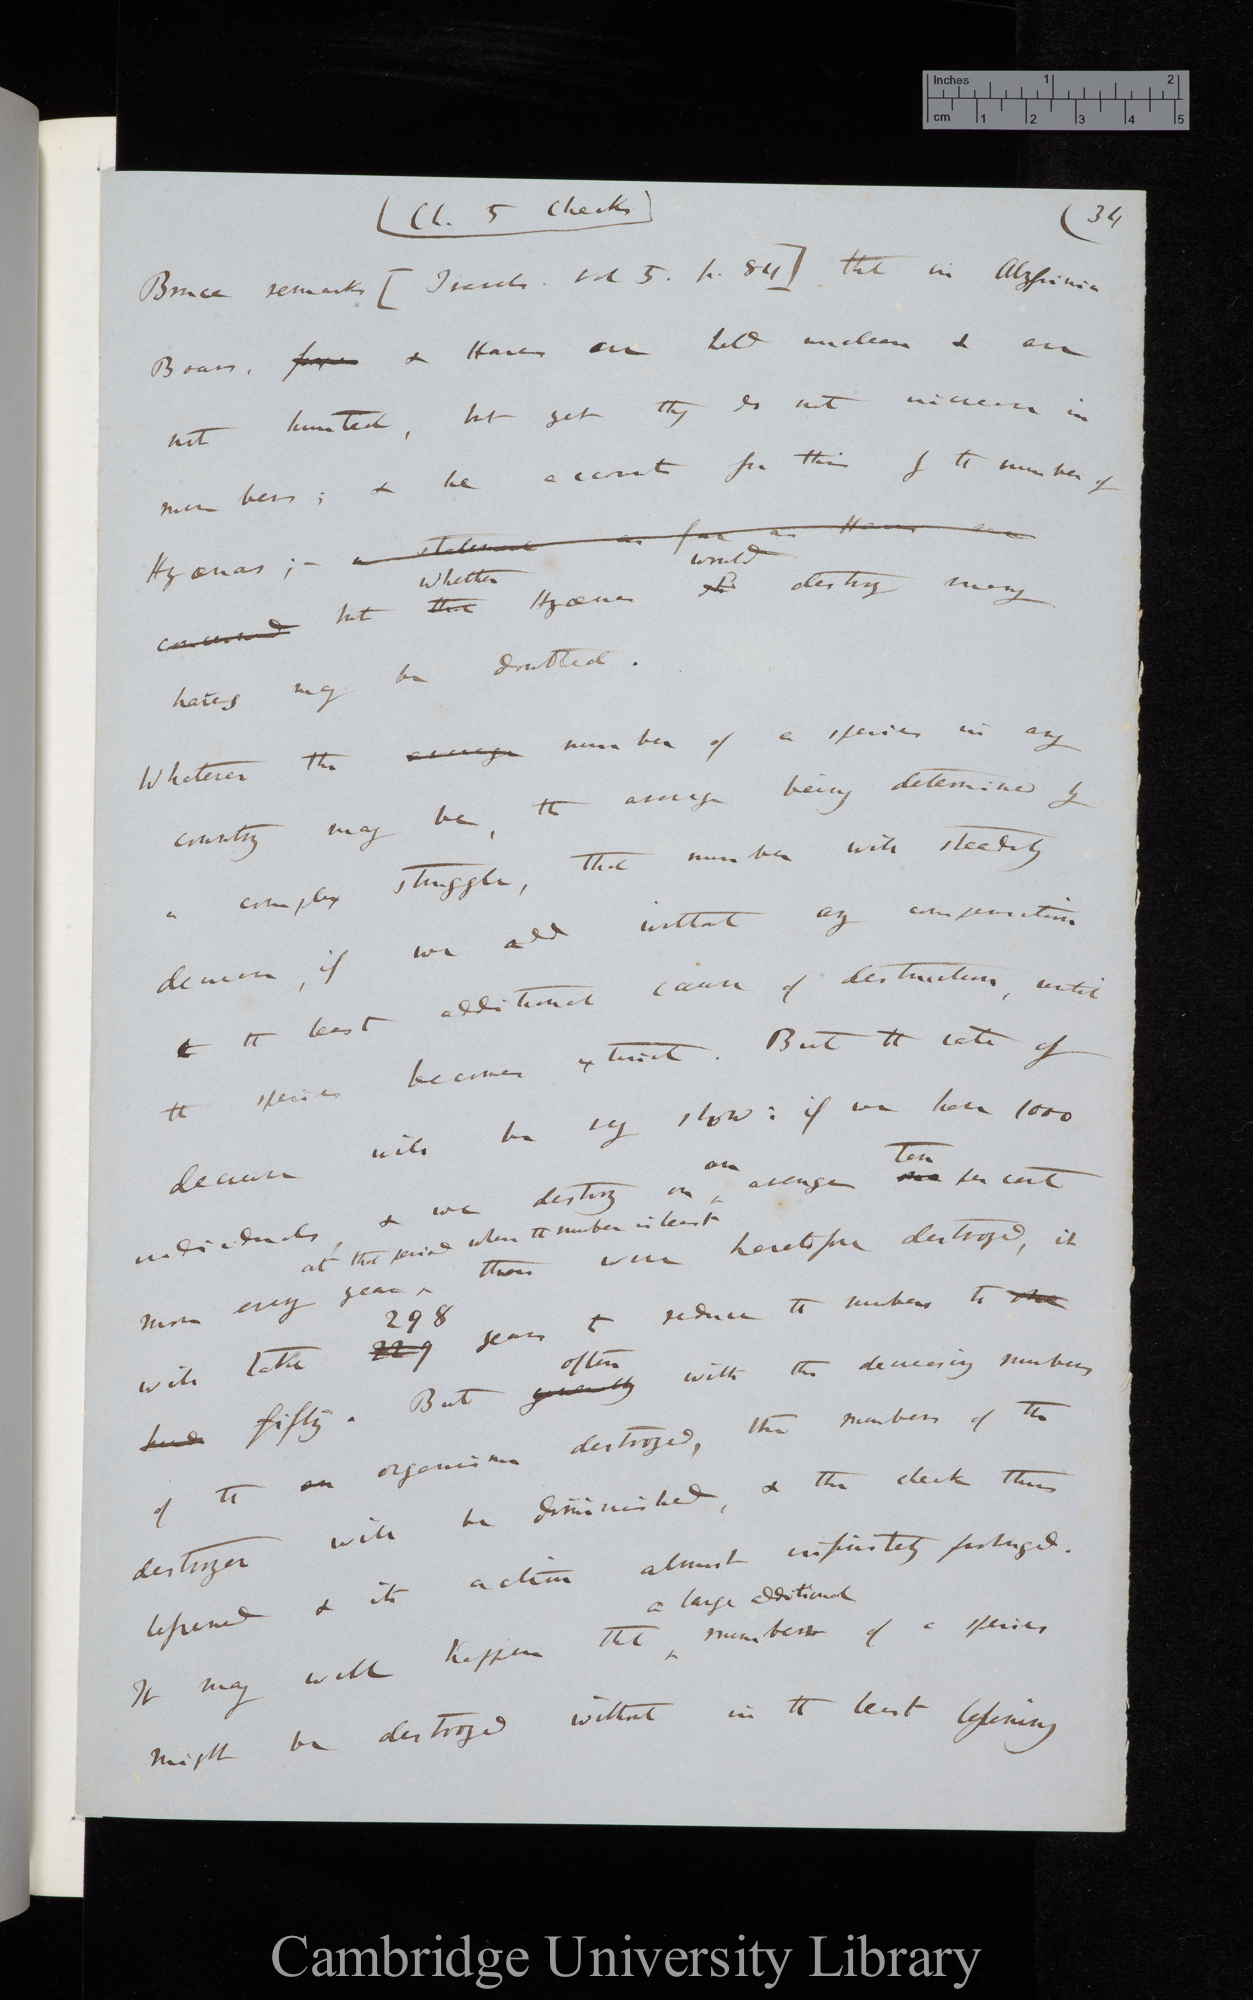 Inches 1 2
cm 1 2 3 4 5
(Ch. 5 Checks) (34
Bruce remarks [Travels. vol 5. p. 84] that in Abyssinia
Boars, & Hares are held unclean & are
not hunted, but yet they do not increase in
numbers; & he accounts for this by the number of
Hyænas;— a statement as far as Hares are
whether would
concerned but that Hyænas destroy many
hares may be doubted.
Whatever the average number of a species in any
country may be, the average being determined by
a complex struggle, that number will steadily
decrease, if we add without any compensation
the least additional cause of destruction, until
the species becomes extinct. But the rate of
decrease will be very slow: if we have 1000
an ten
individuals, & we destroy on average one per cent
at that period when the number is least
more every year, than were heretofore destroyed, it
298
will take 229 years to reduce the numbers to one
often
hund fifty. But generally with the decreasing numbers
of the an organism destroyed, the numbers of the
destroyer will be diminished, & the check thus
lessened & its action almost infinitely prolonged.
a large additional
It may well happen that numbers of a species
might be destroyed without in the least lessening
Cambridge University Library